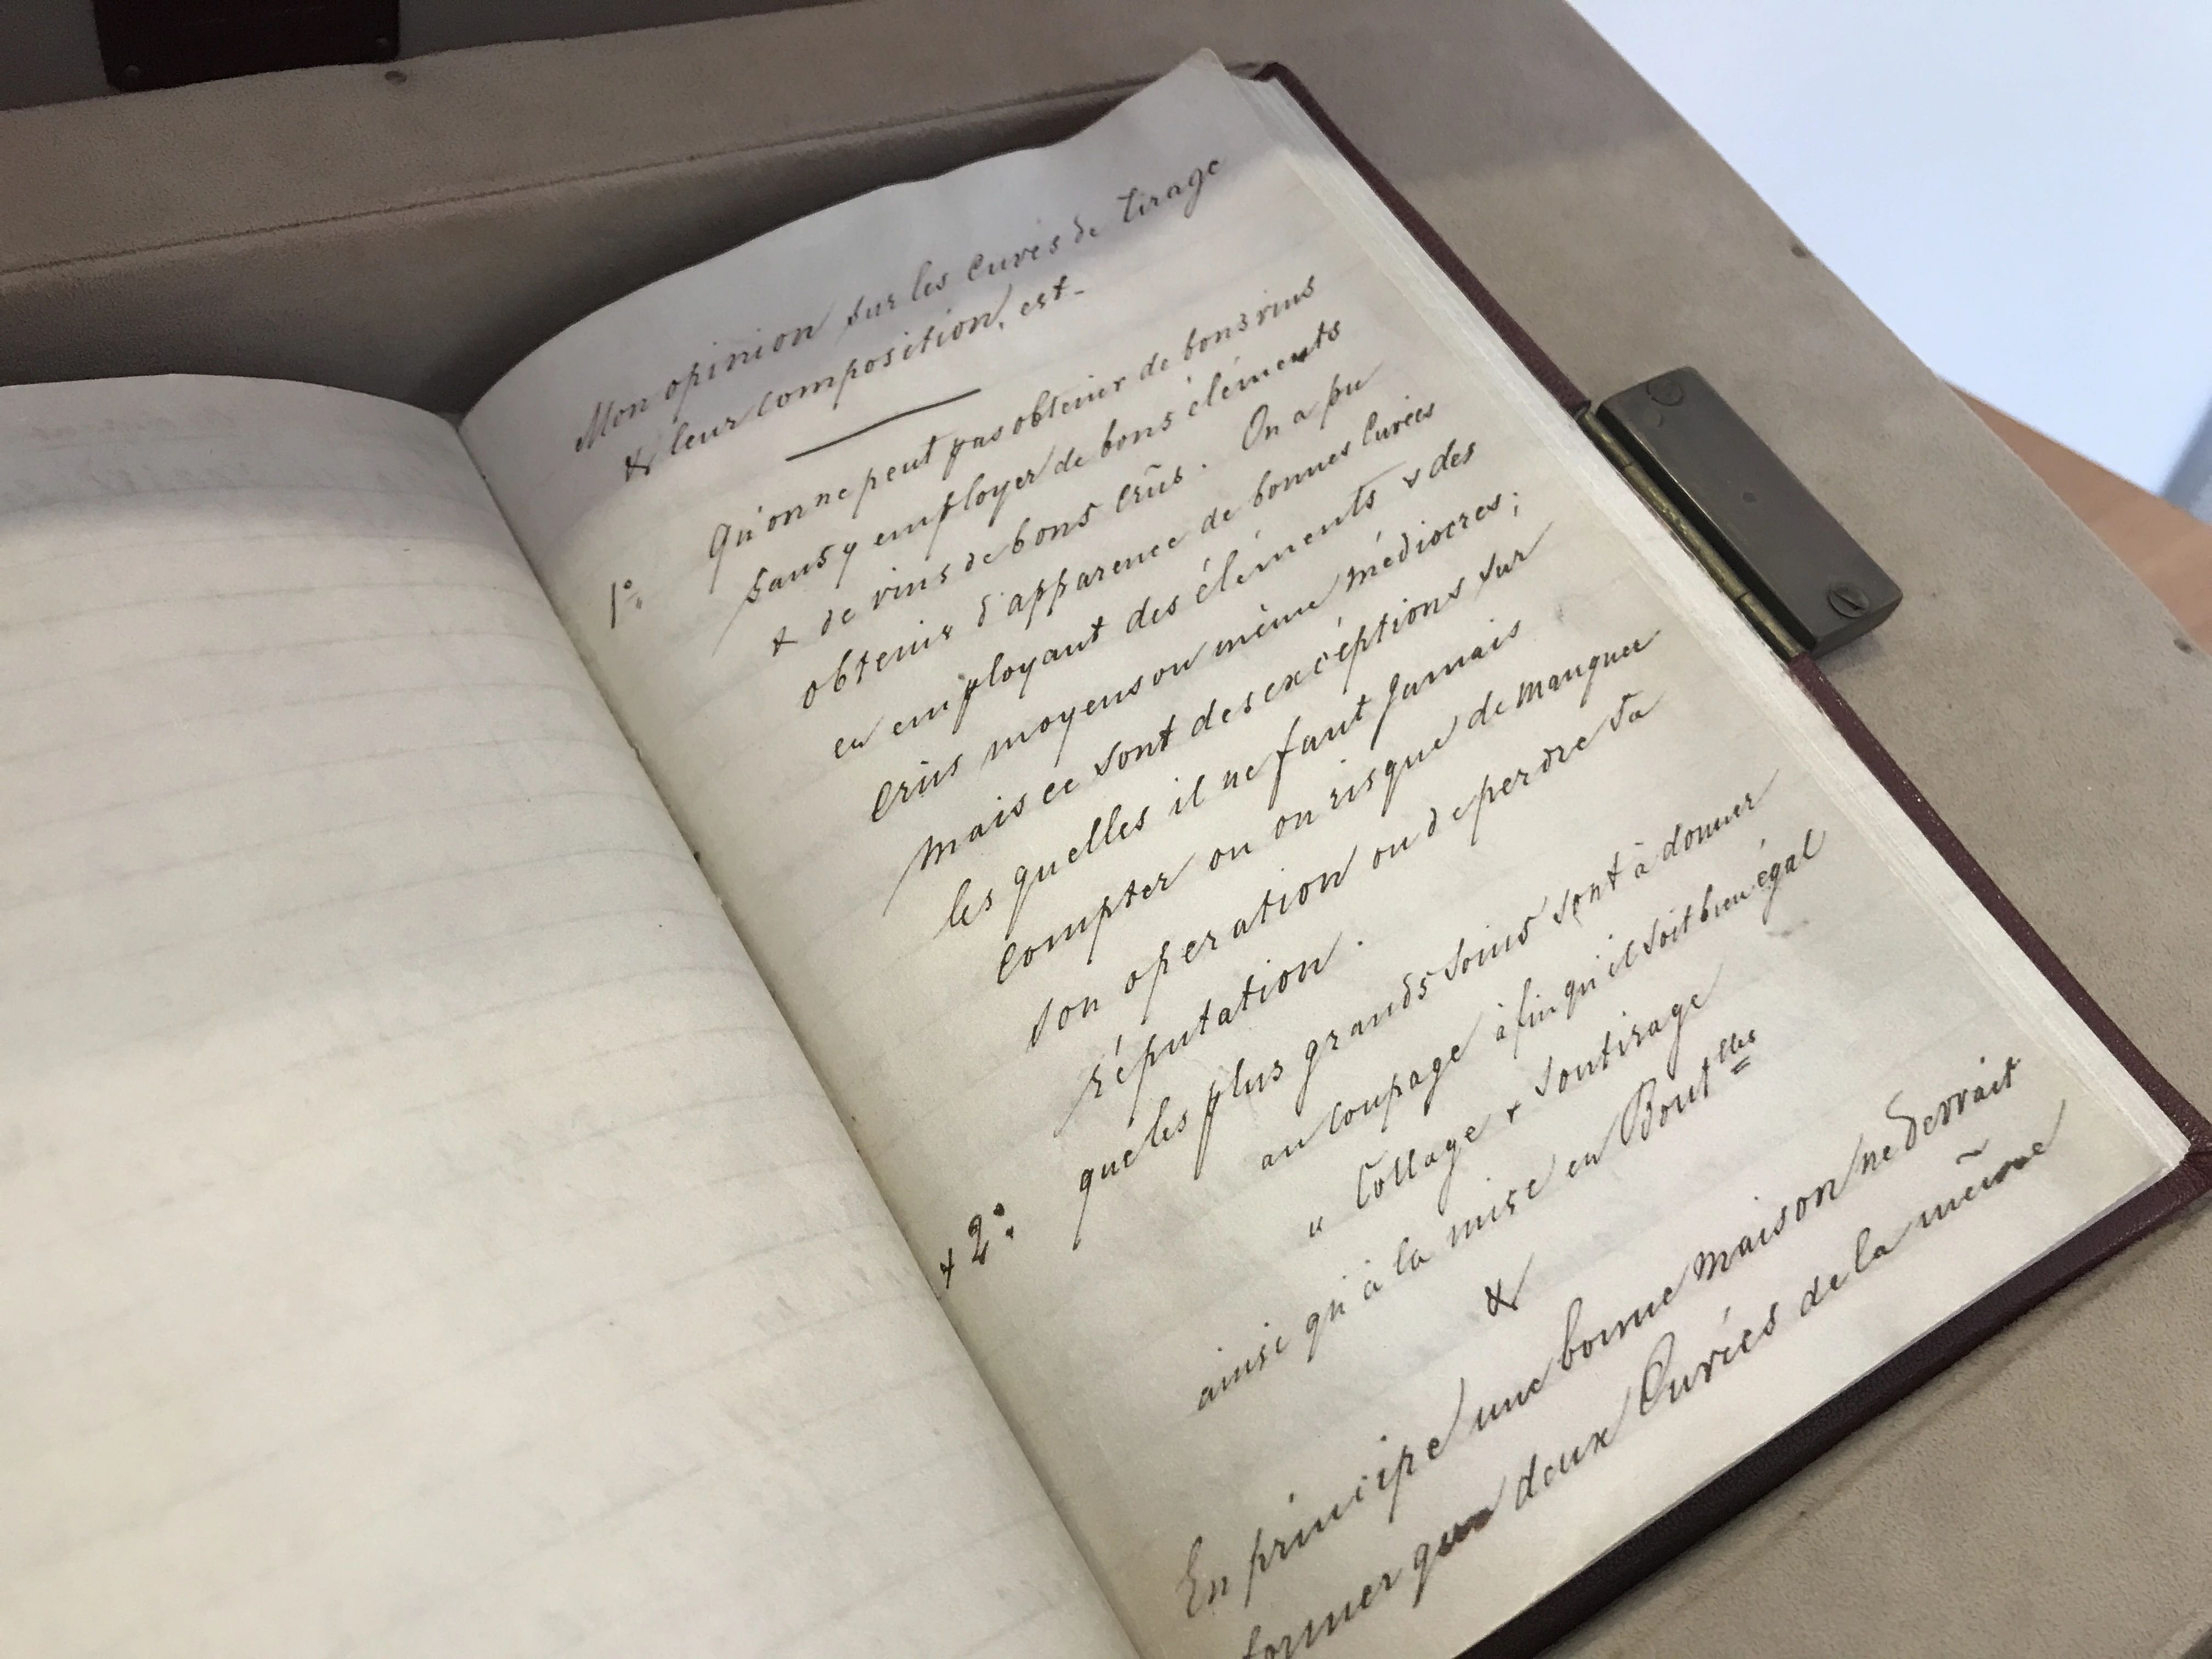 Mon opinion sur les Cuvés de tirage
& leur composition, est-
1º Qu'on ne peut pas obtenir de bons vins
sans y employer de bons éléments
& de vins de bons crûs. On a pu
obtenir d'apparence de bonnes Cuvées
en employant des éléments & des
crûs moyens ou même médiocres;
mais ce sont des excéptions sur
les quelles il ne faut jamais
compter ou on risque de manquer
son operation ou de perdre sa
réputation.
& 2º que les plus grands soins sont à donner
au Coupage àfin qu'il soit bien égal
" Collage & Soutirage
ainsi qu'à la mise en Boutlles
&
En principe une bonne maison ne devrait
former que deux Cuvées de la même